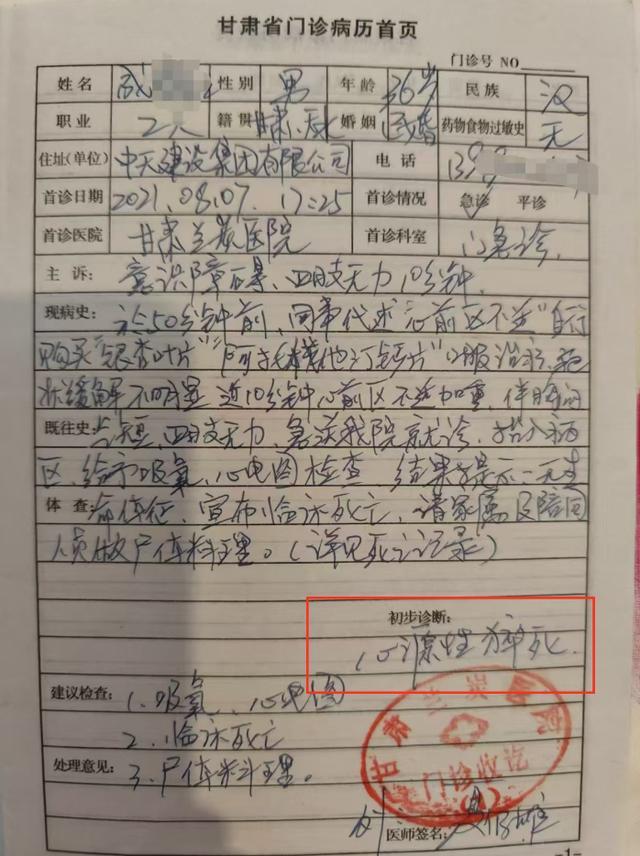 甘肃省门诊病历首页
门诊号 NO
姓名 成 性别 男 年龄 36岁 民族 汉
职业 工人 籍贯 甘肃、天水 婚姻 已婚 药物食物过敏史 无
住址(单位) 中天建设集团有限公司 电话 139
首诊日期 2021.08.07. 17:25 首诊情况 急诊 平诊
首诊医院 甘肃兰炭医院 首诊科室 门急诊
主诉: 意识障碍、四肢无力10分钟.
现病史: 于50分钟前,同事代述"心前区不适"自行
购买"银杏叶片""阿托伐他汀钙片"口服治疗,
缓解不明显 近10分钟心前区不适加重,伴胸闷
既往史: 气短,四肢无力,急送我院就诊,抬入病
区,给予吸氧,心电图检查 结果提示:无生
体查: 命体征,宣布临床死亡,请家属及陪同
人员做尸体料理。(详见死亡记录)
初步诊断:
心源性猝死.
建议检查: 1.吸氧、心电图
2.临床死亡
处理意见: 3.尸体料理。
甘肃 炭医院
门诊收讫
医师签名:
-1-